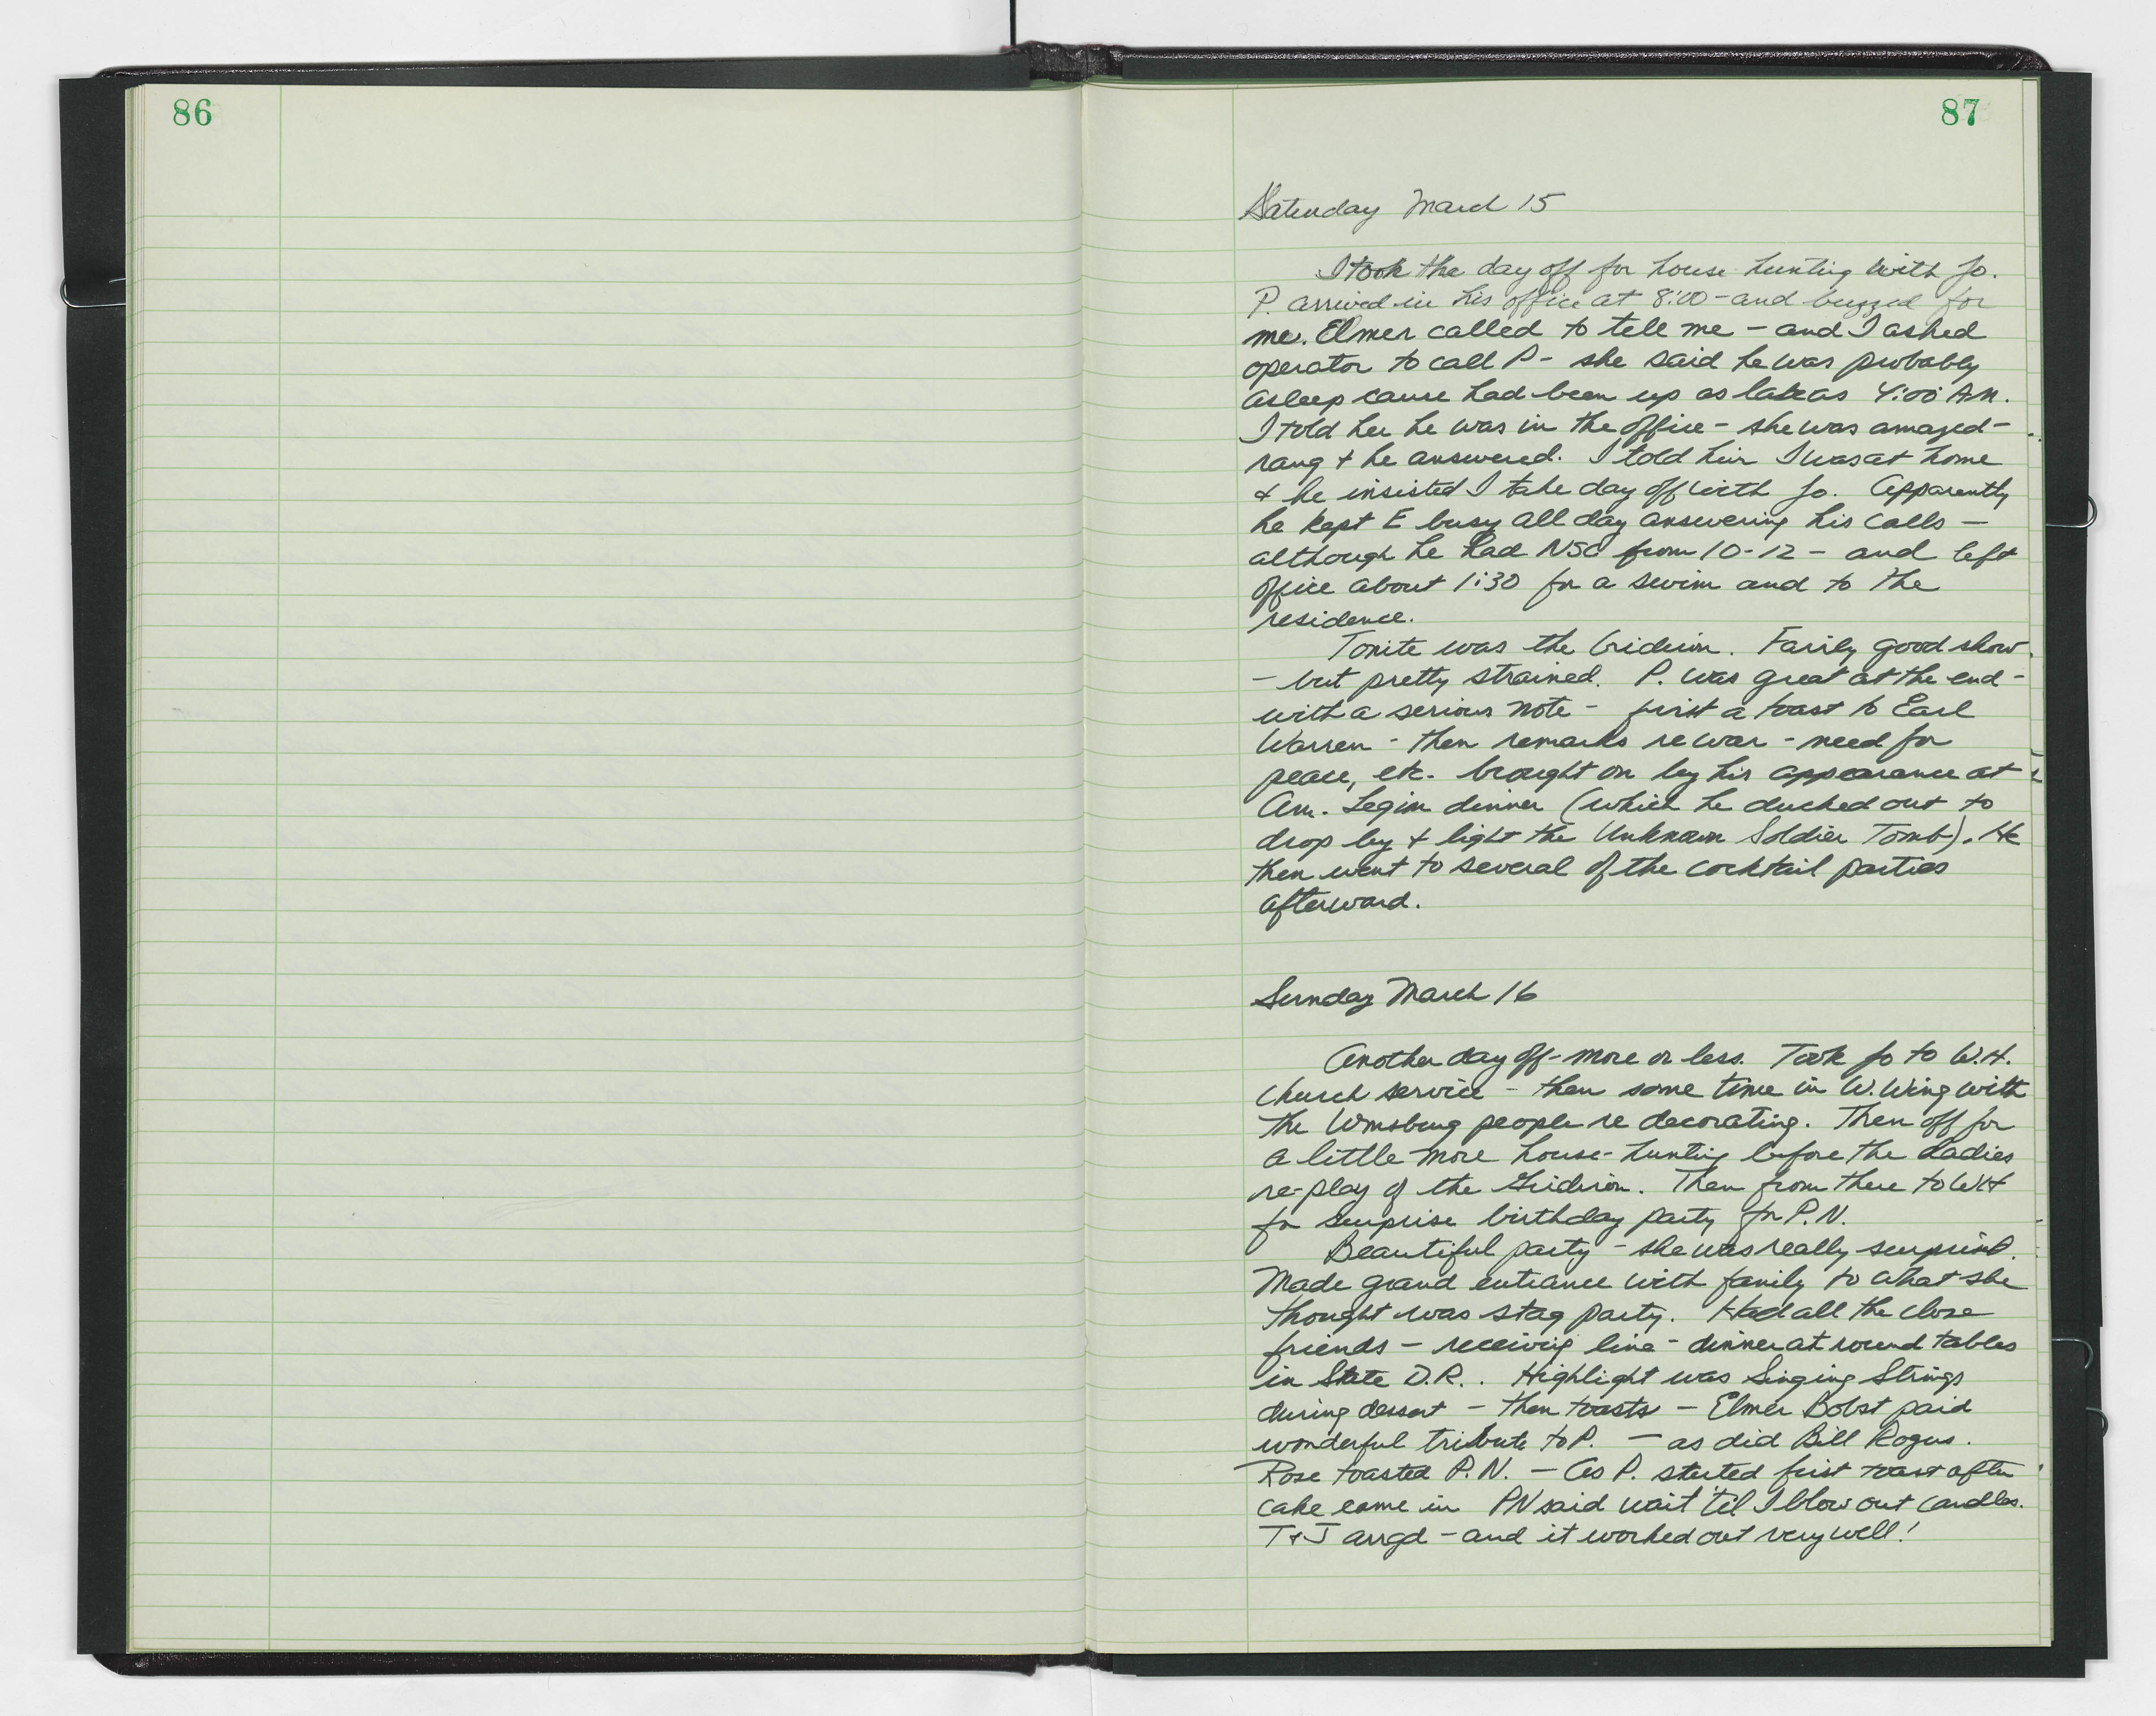 86
87
Saturday March 15
I took the day off for house hunting with Jo.
P. arrived in his office at 8:00 - and buzzed for
me. Elmer called to tell me - and I asked
operator to call P - she said he was probably
asleep cause had been up as late as 4:00 AM.
I told her he was in the office - she was amazed -
rang + he answered. I told him I was at home
+ he insisted I take day off with Jo. Apparently
he kept E busy all day answering his calls -
although he had NSC from 10-12 - and left
office about 1:30 for a swim and to the
residence.
Tonite was the Gridiron. Fairly good show
- but pretty strained. P. was great at the end -
with a serious note - first a toast to Earl
Warren - then remarks re war - need for
peace, etc. brought on by his appearance at
Am. Legion dinner (which he ducked out to
drop by + light the Unknown Soldier Tomb). He
then went to several of the cocktail parties
afterward.
Sunday March 16
Another day off - more or less. Took Jo to W.H.
Church service - then some time in W. Wing with
the Wmsburg people re decorating. Then off for
a little more house-hunting before the Ladies
re-play of the Gridiron. Then from there to WH
for surprise birthday party for P.N.
Beautiful party - she was really surprised.
Made grand entrance with family to what she
thought was stag party. Had all the close
friends - receiving line - dinner at round tables
in State D.R.. Highlight was Singing Strings
during dessert - then toasts - Elmer Bobst paid
wonderful tribute to P. - as did Bill Rogers.
Rose toasted P.N. - As P. started first toast after
cake came in PN said wait 'til I blow out candles.
T+J arrgd - and it worked out very well!